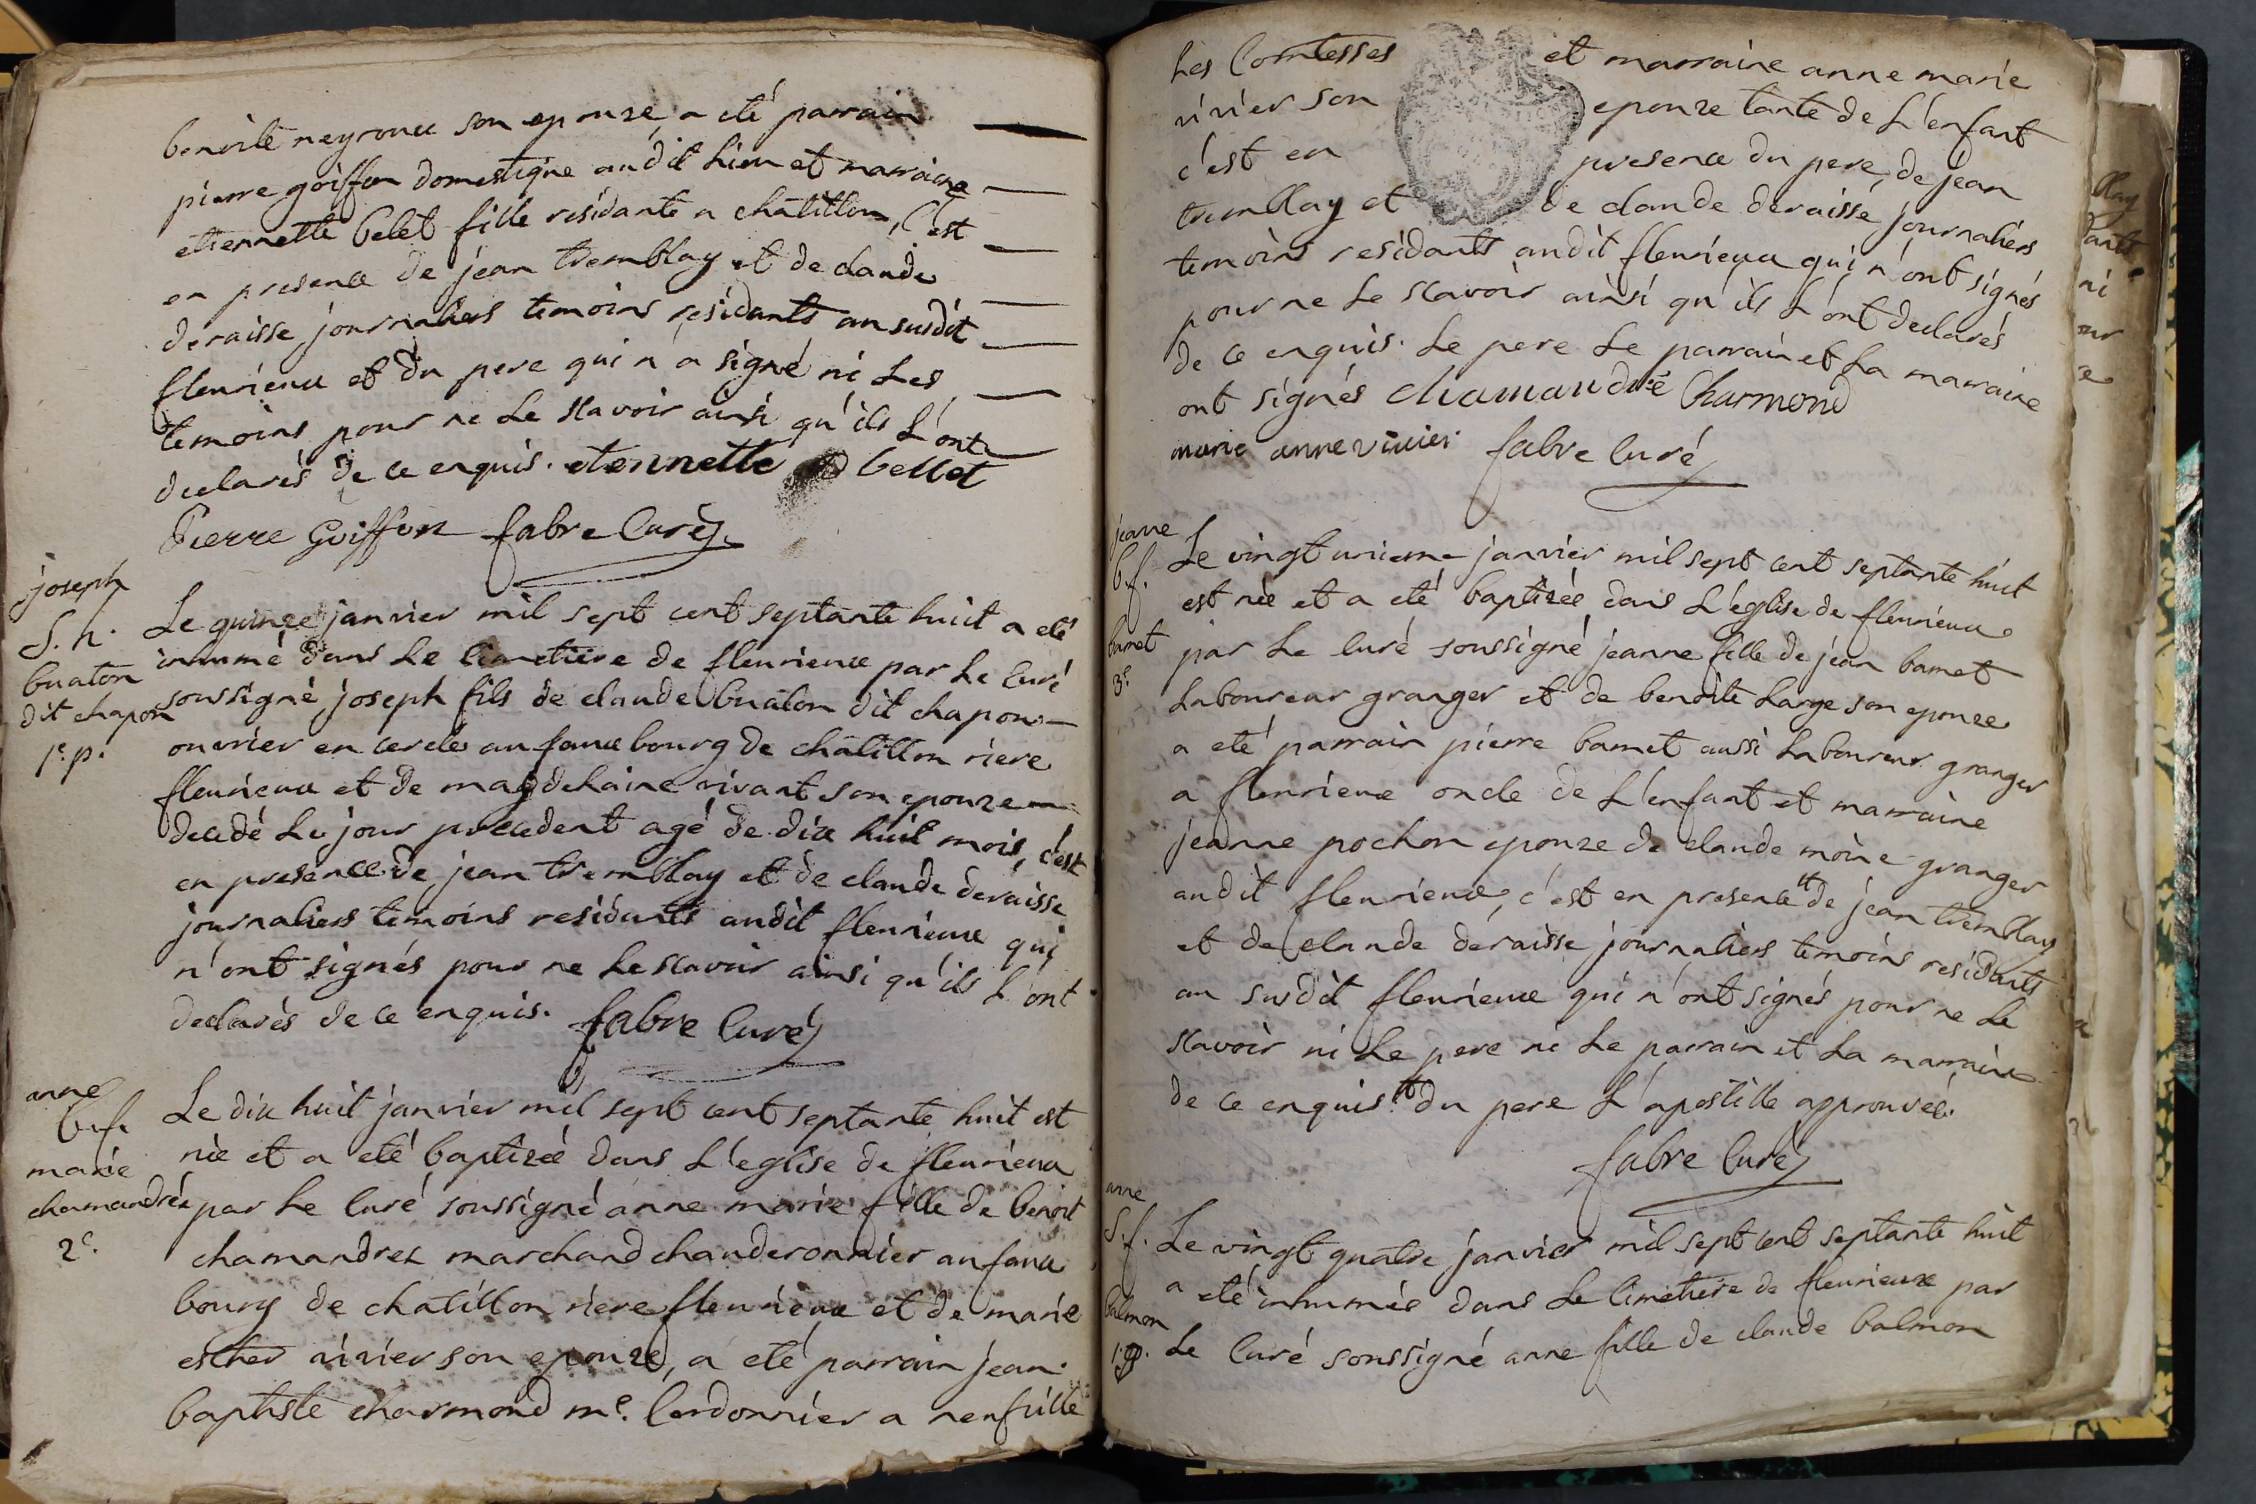 benoite neyroux son epouze, a eté parrain
pierre goiffon domestique audit lieu et marraine
etiennette belet fille residante a châtillon, c'est
en presence de jean tremblay et de claude
deraisse journaliers temoins residants au susdit
fleurieux et du pere qui n'a signé ni les
temoins pour ne le sçavoir ainsi qu'ils l'ont
declarés de ce enquis. etennette bellet
Pierre Goiffon fabre Curé
joseph
S. h.
buaton
dit chapon
1e. p.
Le quinze janvier mil sept cent septante huit a eté
inhumé dans le cimetiere de fleurieux par le Curé
soussigné joseph fils de claude buaton dit chapon
ouvrier en cercles au faux bourg de châtillon riere
fleurieux et de magdelaine vivant son epouze
decedé le jour precedent agé de dix huit mois, c'est
en presence de jean tremblay et de claude deraisse
journaliers temoins residants audit fleurieux qui
n'ont signés pour ne le sçavoir ainsi qu'ils l'ont
declarés de ce enquis. fabre Curé
anne
b.f.
marie
chamandrés
2e.
Le dix huit janvier mil sept cent septante huit est
née et a eté baptizée dans l'eglise de fleurieux
par le Curé soussigné anne marie fille de benoit
chamandrez marchand chauderonnier au faux
bourg de chatillon riere fleurieux et de marie
esther vivier son epouze, a eté parrain jean
baptiste charmond me. Cordonnier a neufville
les Comtesses et marraine anne marie
vivier son epouze tante de l'enfant
c'est en presence du pere, de jean
tremblay et de claude deraisse journaliers
temoins residants audit fleurieux qui n'ont signés
pour ne le sçavoir ainsi qu'ils l'ont declarés
de ce enquis. le pere le parrain et la marraine
ont signés chamandré Charmond
marie anne vivier fabre Curé
jeanne
b.f.
bamet
3e.
Le vingt unieme janvier mil sept cent septante huit
est née et a eté baptizée dans l'eglise de fleurieux
par le Curé soussigné jeanne fille de jean bamet
laboureur granger et de benoite large son epouze
a eté parrain pierre bamet aussi laboureur granger
a fleurieux oncle de l'enfant et marraine
jeanne pochon epouze de claude moine granger
audit fleurieux, c'est en presence de jean tremblay
et de claude deraisse journaliers temoins residants
au susdit fleurieux qui n'ont signés pour ne le
sçavoir ni le pere ni le parrain et la marraine
de ce enquis. du pere l'apostille approuvée.
fabre Curé
anne
S.f.
balmon
Le vingt quatre janvier mil sept cent septante huit
a eté inhumée dans le cimetiere de fleurieux par
le Curé soussigné anne fille de claude balmon